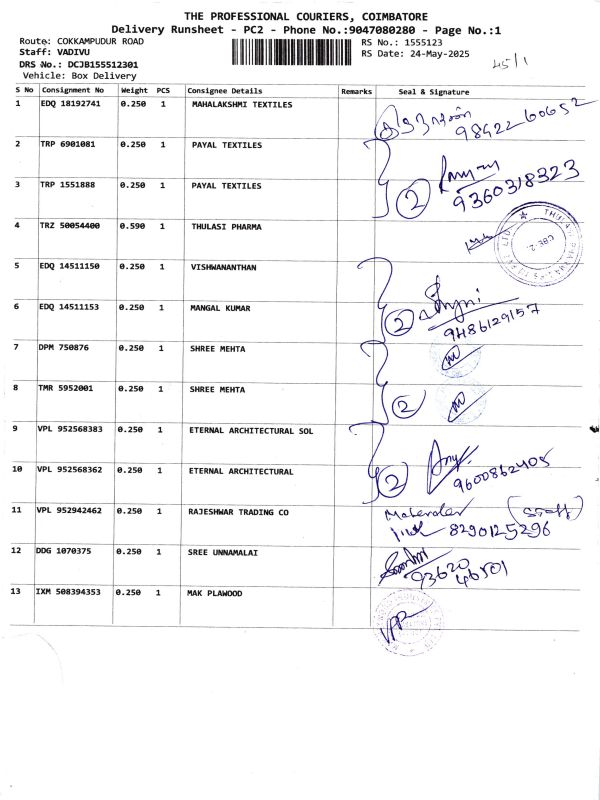 THE PROFESSIONAL COURIERS, COIMBATORE
Delivery Runsheet - PC2 - Phone No.:9047080280 - Page No.:1
Route: COKKAMPUDUR ROAD
Staff: VADIVU
DRS No.: DCJB155512301
Vehicle: Box Delivery
RS No.: 1555123
RS Date: 24-May-2025
45/1
S No Consignment No Weight PCS Consignee Details Remarks Seal & Signature
1 EDQ 18192741 0.250 1 MAHALAKSHMI TEXTILES
98422 60652
2 TRP 6901081 0.250 1 PAYAL TEXTILES
3 TRP 1551888 0.250 1 PAYAL TEXTILES
2 9360318323
4 TRZ 50054400 0.590 1 THULASI PHARMA
5 EDQ 14511150 0.250 1 VISHWANANTHAN
6 EDQ 14511153 0.250 1 MANGAL KUMAR
2 9486129157
7 DPM 750876 0.250 1 SHREE MEHTA
8 TMR 5952001 0.250 1 SHREE MEHTA
2
9 VPL 952568383 0.250 1 ETERNAL ARCHITECTURAL SOL
10 VPL 952568362 0.250 1 ETERNAL ARCHITECTURAL
2 9600862405
11 VPL 952942462 0.250 1 RAJESHWAR TRADING CO
(Staff)
8290125296
12 DDG 1070375 0.250 1 SREE UNNAMALAI
93620
46501
13 IXM 508394353 0.250 1 MAK PLAWOOD